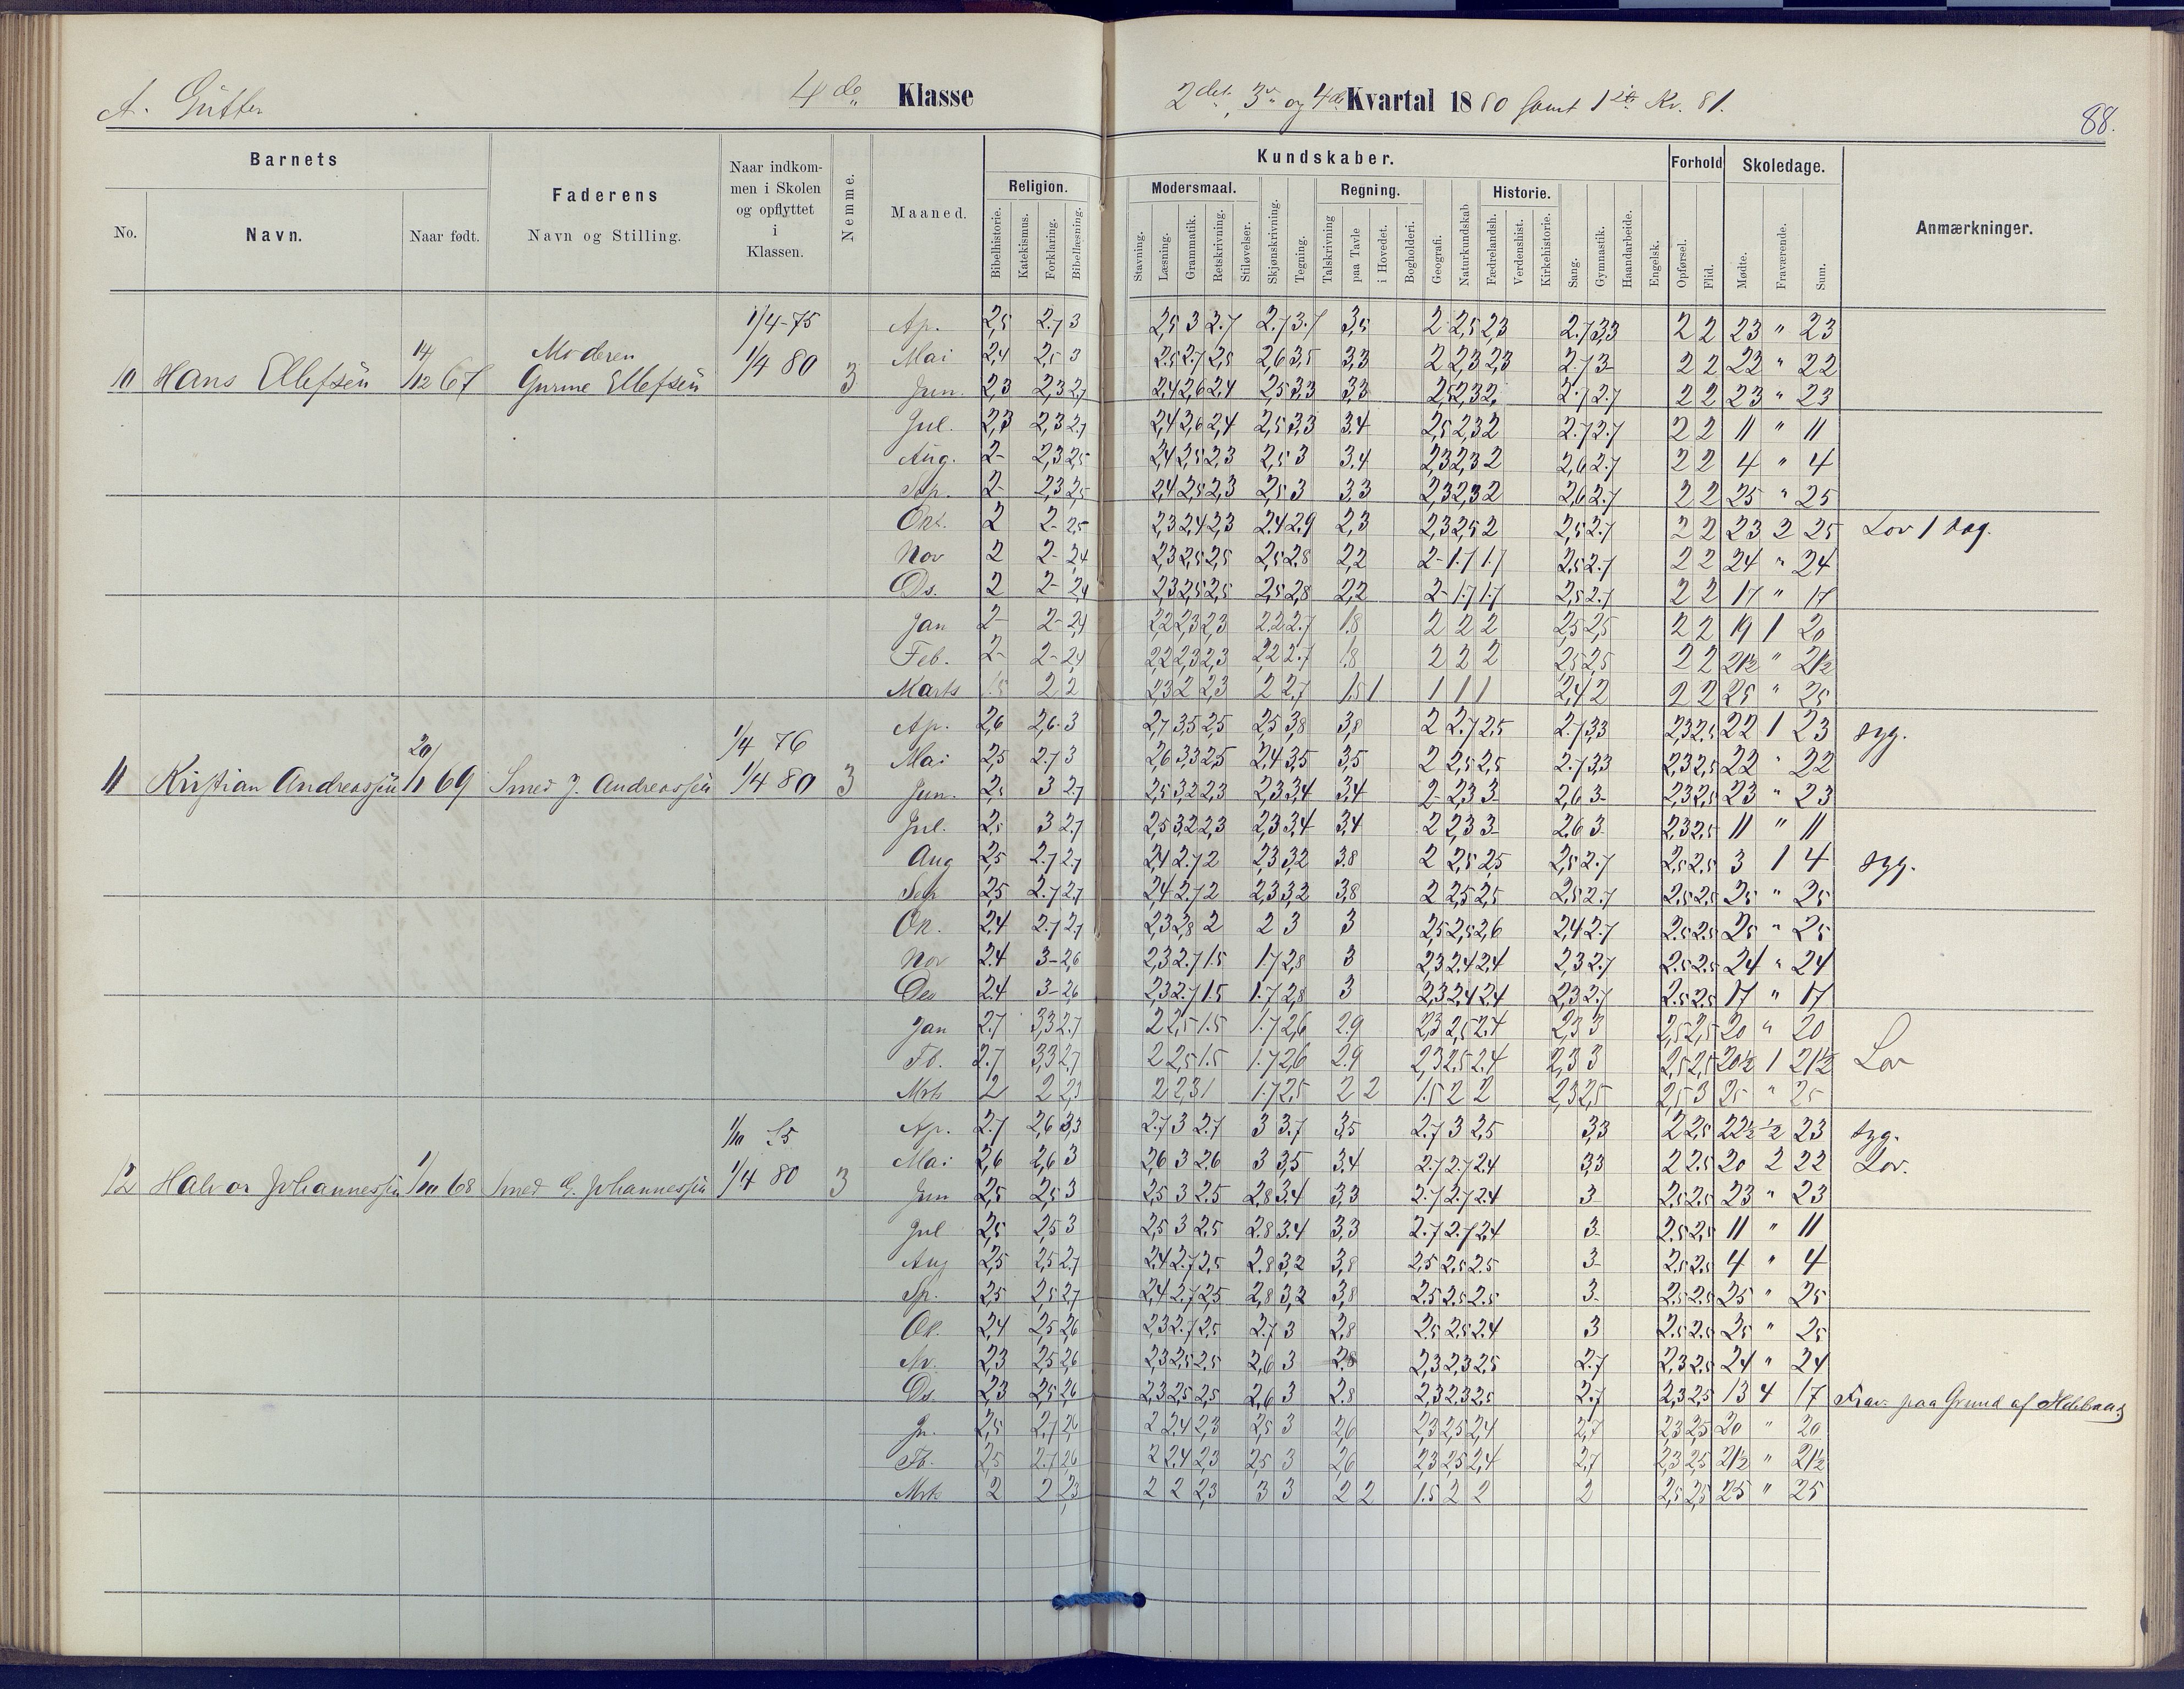 A. Gutter 4de Klasse 2det, 3die og 4de Kvartal 1880 samt 1ste Kv. 81. 88.
Barnets Faderens Naar indkommen i Skolen og opflyttet i Klassen. Nemme. Maaned. Kundskaber. Forhold Skoledage. Anmærkninger.
Religion. Modersmaal. Regning. Historie.
No. Navn. Naar født. Navn og Stilling.
Bibelhistorie. Katekismus. Forklaring. Bibellæsning. Stavning. Læsning. Grammatik. Retskrivning. Stiløvelser. Skjønskrivning. Tegning. Talskrivning paa Tavle i Hovedet. Bogholderi. Geografi. Naturkundskab Fædrelandsh. Verdenshist. Kirkehistorie. Sang. Gymnastik. Haandarbeide. Engelsk. Opførsel. Flid. Mødte. Fraværende. Sum.
10 Hans Ellefsen 14/12 67 Moderen Gurine Ellefsen 1/4-75 1/4 80 3
Ap. 2,5 2.7 3 2,5 3 2.7 2.7 3.7 3,5 2 2,5 2,3 2.7 3,3 2 2 23 " 23
Mai 2,4 2,5 3 2,5 2.7 2,5 2,6 3,5 3,3 2 2,3 2,3 2.7 3- 2 2 22 " 22
Jun. 2,3 2,3 2,7 2,4 2,6 2,4 2,5 3,3 3,3 2,5 2,3 2 2.7 2.7 2 2 23 " 23
Jul. 2,3 2,3 2,7 2,4 2,6 2,4 2,5 3,3 3.4 2,5 2,3 2 2.7 2.7 2 2 11 " 11
Aug. 2- 2,3 2,5 2,4 2,5 2,3 2,5 3 3.4 2,3 2,3 2 2,6 2.7 2 2 4 " 4
Sep. 2- 2,3 2,5 2,4 2,5 2,3 2,5 3 3,3 2,3 2,3 2 2,6 2.7 2 2 25 " 25
Okt. 2 2- 2,5 2,3 2,4 2,3 2.4 2,9 2,3 2,3 2,5 2 2,5 2.7 2 2 23 2 25 Lov 1 dag.
Nov 2 2- 2,4 2,3 2,5 2,5 2,5 2,8 2,2 2- 1.7 1.7 2,5 2.7 2 2 24 " 24
Ds. 2 2- 2,4 2,3 2,5 2,5 2,5 2,8 2,2 2- 1.7 1.7 2,5 2.7 2 2 17 " 17
Jan 2- 2- 2,4 2,2 2,3 2,3 2.2 2.7 1.8 2 2 2 2,5 2,5 2 2 19 1 20
Feb. 2- 2- 2,4 2,2 2,3 2,3 2,2 2.7 1.8 2 2 2 2,5 2,5 2 2 21½ " 21½
Marts 1.5 2 2 2,3 2 2,3 2 2,7 1.5 1 1 1 1 2,4 2 2 2 25 " 25
11 Kristian Andreassen 20/11 69 Smed J. Andreassen 1/4 76 1/4 80 3
Ap. 2,6 2,6 3 2,7 3,5 2,5 2,5 3,8 3,8 2 2.7 2,5 2.7 3,3 2,3 2,5 22 1 23 syg.
Mai 2,5 2.7 3 2,6 3,3 2,5 2,4 3,5 3,5 2 2,5 2,5 2.7 3,3 2,3 2,5 22 " 22
Jun. 2,5 3 2,7 2,5 3,2 2,3 2,3 3,4 3,4 2- 2,3 3- 2,6 3- 2,3 2,5 23 " 23
Jul. 2,5 3 2.7 2,5 3,2 2,3 2,3 3,4 3,4 2 2,3 3- 2,6 3 2,3 2,5 11 " 11
Aug 2,5 2.7 2,7 2,4 2.7 2 2,3 3,2 3,8 2 2,5 2,5 2,5 2.7 2,5 2,5 3 1 4 syg.
Sep 2,5 2.7 2,7 2,4 2.7 2 2,3 3,2 3,8 2 2,5 2,5 2,5 2.7 2,5 2,5 25 " 25
Ok. 2,4 2.7 2,7 2,3 2,8 2 2 3 3 2,5 2,5 2,6 2,4 2.7 2.5 2.5 25 " 25
Nov 2.4 3- 2,6 2,3 2.7 1.5 1.7 2,8 3 2,3 2,4 2,4 2,3 2.7 2.5 2.5 24 " 24
Des 2.4 3- 2,6 2,3 2.7 1.5 1.7 2,8 3 2,3 2,4 2,4 2,3 2.7 2.5 2.5 17 " 17
Jan 2.7 3,3 2.7 2 2,5 1.5 1.7 2,6 2.9 2,3 2,5 2.4 2,3 3 2,5 2,5 20 " 20
Fb. 2.7 3,3 2,7 2 2,5 1.5 1.7 2,6 2.9 2,3 2,5 2.4 2,3 3 2,5 2,5 20½ 1 21½ Lov
Mrts 2 2 2,3 2 2,3 1 1.7 2,5 2 2 1.5 2 2 2,3 2,5 2,5 3 25 " 25
12 Halvor Johannessen 1/10 68 Smed G. Johannessen 1/10 75 1/4 80 3
Ap. 2.7 2,6 3,3 2.7 3 2.7 3 3.7 3,5 2.7 3 2,5 3,3 2 2,5 22½ ½ 23 syg.
Mai 2,6 2,6 3 2,6 3 2,6 3 3,5 3.4 2.7 2.7 2.4 3,3 2 2.5 20 2 22 Lov.
Jun 2,5 2,5 3 2,5 3 2.5 2,8 3,4 3,3 2.7 2.7 2.4 3- 2.5 2.5 23 " 23
Jul 2,5 2,5 3 2,5 3 2,5 2.8 3.4 3,3 2.7 2.7 2.4 3- 2.5 2,5 11 " 11
Aug 2,5 2,5 2.7 2.4 2.7 2,5 2.8 3,2 3,8 2,5 2,5 2.5 3- 2.5 2.5 4 " 4
Sp. 2,5 2,5 2,7 2,4 2.7 2,5 2,8 3,2 3,8 2.5 2.5 2.5 3- 2.5 2.5 25 " 25
Ok. 2,4 2,5 2,6 2,3 2.7 2,5 2.7 3 2,8 2.5 2,5 2.4 3 2.5 2.5 25 " 25
Nv. 2,3 2,5 2,6 2,3 2,5 2,5 2,6 3 2.8 2,3 2,3 2,5 2.7 2,3 2,5 24 " 24
Ds. 2,3 2,5 2,6 2,3 2,5 2,5 2,6 3 2.8 2,3 2,3 2,5 2.7 2,3 2,5 13 4 17 Frav. paa Grund af Ildebrand
Jn. 2,5 2.7 2,6 2 2,4 2,3 2,5 3 2,6 2,3 2,5 2,4 2,7 2,3 2,5 20 " 20
Fb. 2,5 2.7 2,6 2 2,4 2,3 2,5 3 2,6 2,3 2,5 2,4 2,7 2,3 2,5 21½ " 21½
Mrts 2 2 2,3 2 2 2,3 3 3 2 2 1.5 2 2 2 2,5 2,5 25 " 25